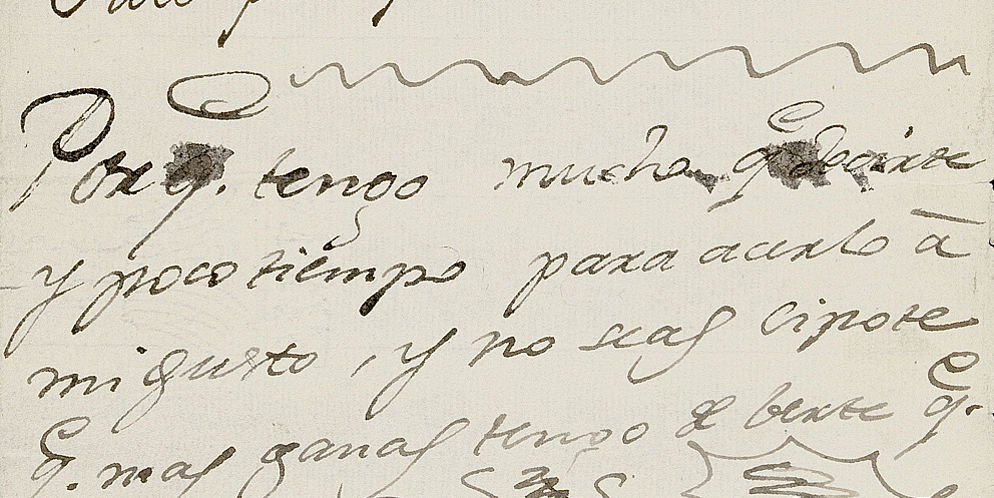 Porq. tengo mucho q. decirte
y poco tiempo para acerlo à
mi gusto, y no seas cipote
q. mas ganas tengo de berte q.